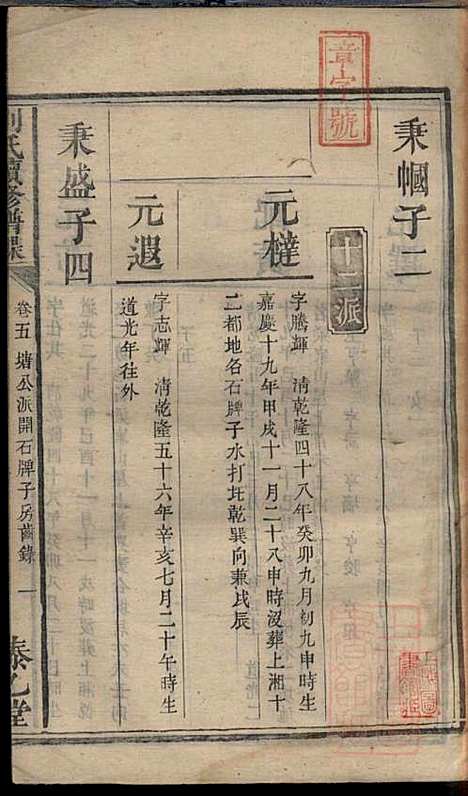 章字號
秉幗子二
十二派
元㯹
字騰輝　清乾隆四十八年癸卯九月初九申時生
嘉慶十九年甲戌十一月二十八申時沒葬上湘十
二都地名石牌子水打坵乾巽向兼戌辰
元遐
字志輝　清乾隆五十六年辛亥七月二十午時生
道光年往外
秉盛子四
氏續修譜牒
卷五　塘公派開石牌子房齒錄　一
泰乙堂